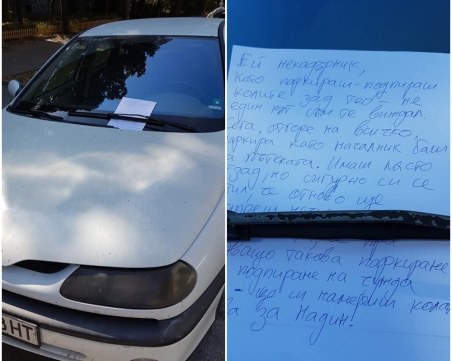 Ей некадърник,
като паркираш-подпираш
колите зад теб не
един път съм те виждал.
отгоре на всичко,
като началник баш
пътеката. Имаш място
зад, но сигурно си се
че отново ще
такова паркиране
подпиране на чужда
ще си намериш кола
за Надин!
ВНТ